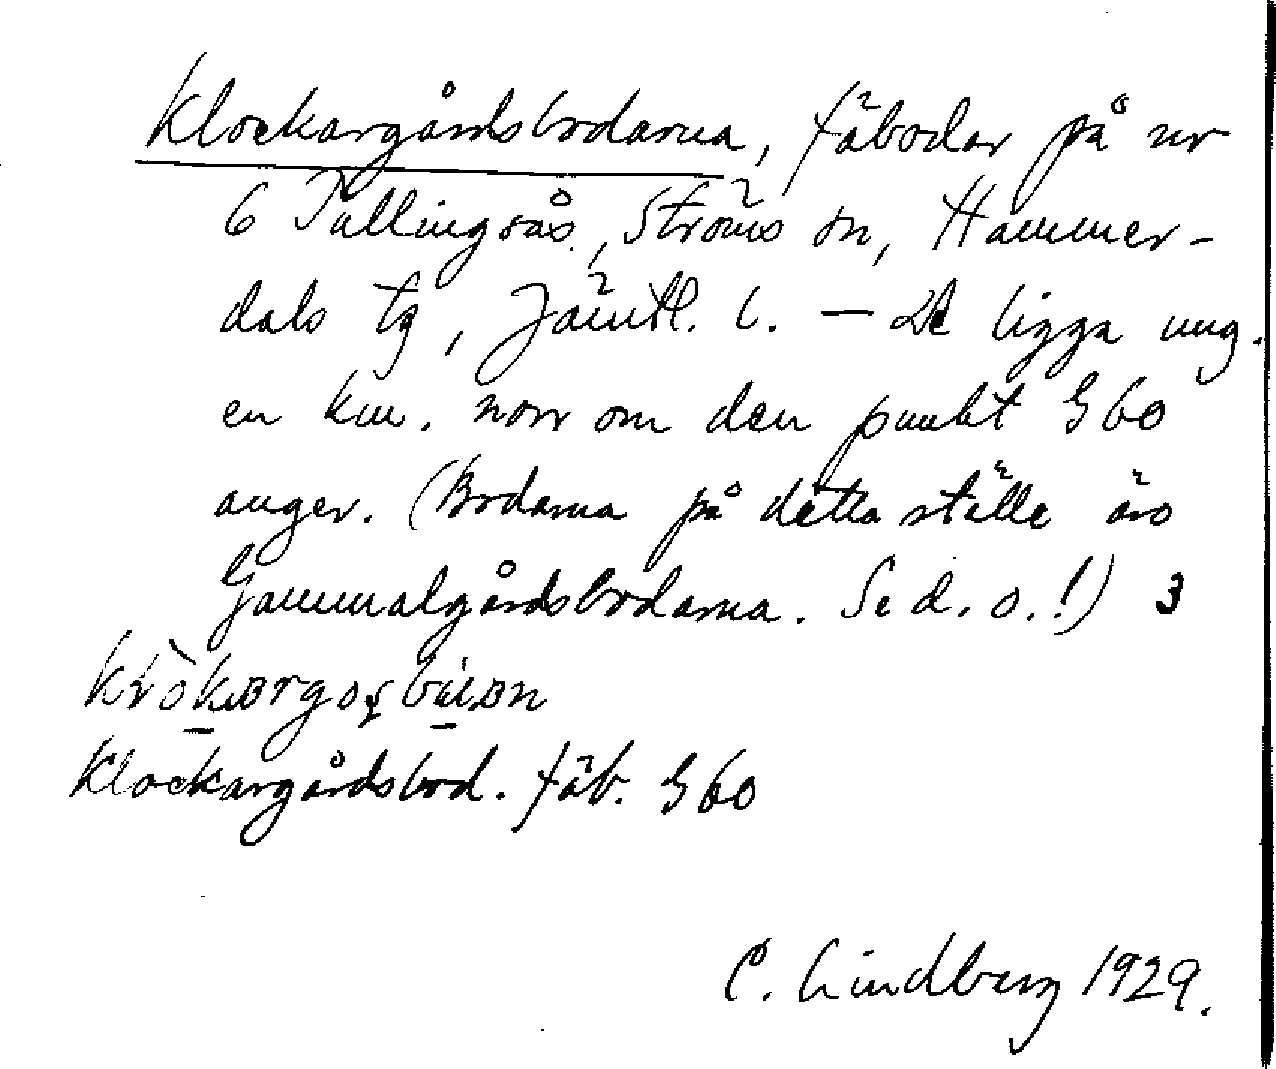 Klockargårdsbodarna, fäbodar på nr
6 Tullingsås, Ströms sn, Hammer-
dals tg, Jämtl. l. – De ligga ung.
en km. norr om den punkt G 60
anger. (Bodarna på detta ställe äro
Gammalgårdsbodarna. Se d. o.!) 3
Klockargårdsbod. fäb. G 60
C. Lindberg 1929.